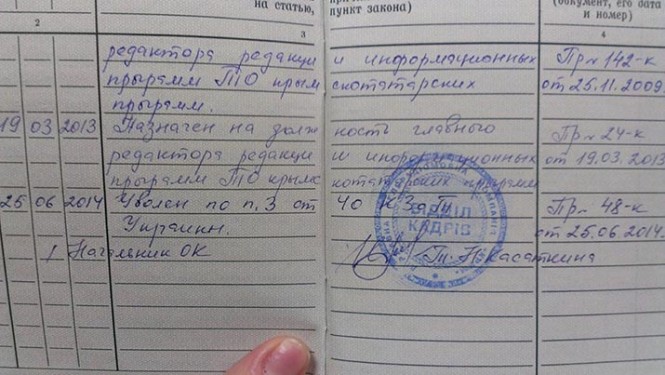 на статью,
пункт закона)
(документ, его дата
и номер)
2 3 4
редактора редакции информационных Пр. 142-к
программ ТО крымскотатарских от 25.11.2009
программ.
19 03 2013 Назначен на должность главного Пр. 24-к
редактора редакции информационных от 19.03.2013
программ ТО крымскотатарских программ
25 06 2014 Уволен по п. 3 от 40 КЗоТ Пр. 48-к
Украины. от 25.06.2014.
Начальник ОК Касаткина
ВІДДІЛ
КАДРІВ